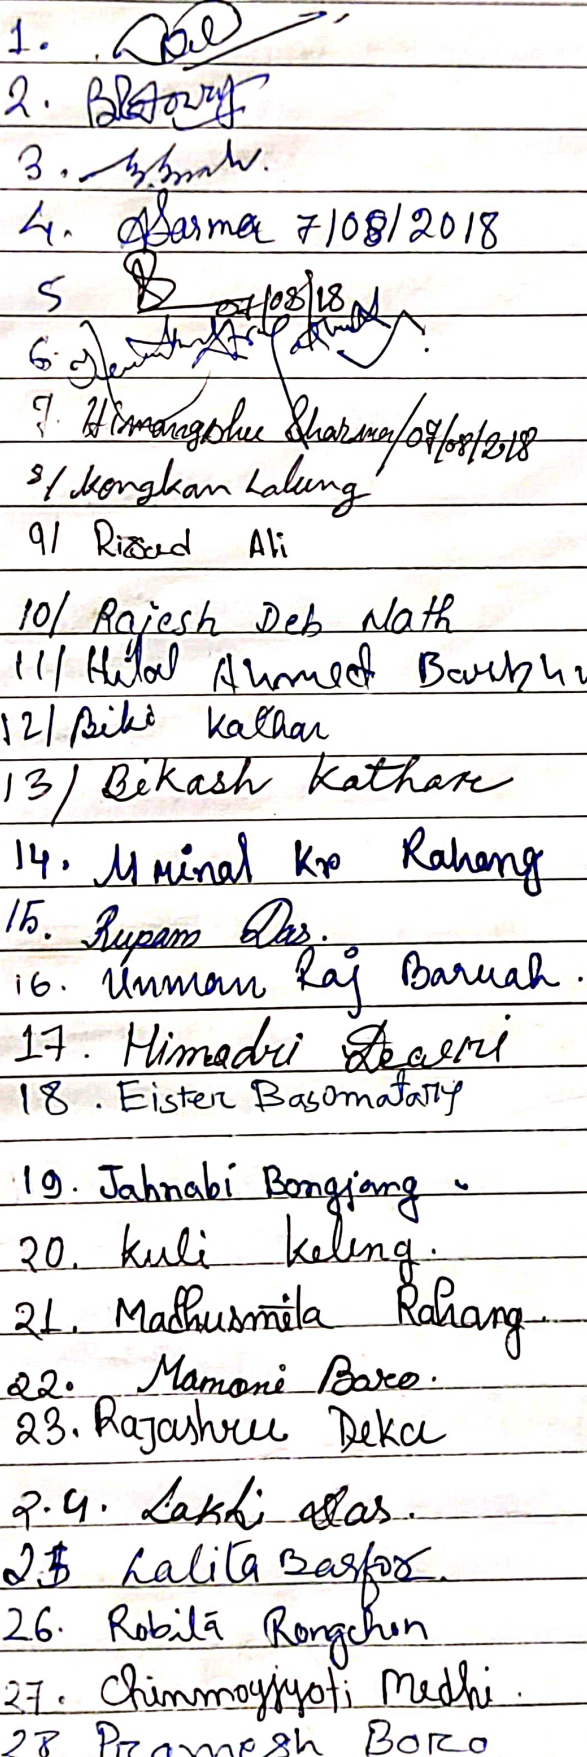 1.
2.
3.
4. Sarma 7/08/2018
5 07/08/18
6.
7. Himangshu Sharma/07/08/2018
8/ Mongkan Lalung
9/ Ali
10/ Rajesh Deb Nath
11/ Hilal Ahmed
12/ Biki Kathar
13/ Bikash Kathar
14. Mrinal Kr Rahang
15. Rupam Das.
16. Unman Raj Baruah.
17. Himadri Deuri
18. Eister Basomatary
19. Jahnabi Bongjang
20. Kuli Keling.
21. Madhusmita Rahang.
22. Mamoni Boro.
23. Rajashree Deka
24. Lakhi Das.
25 Lalita Basfor.
26. Robita Rongchon
27. Chinmoyjyoti Medhi.
28 Pramesh Boro